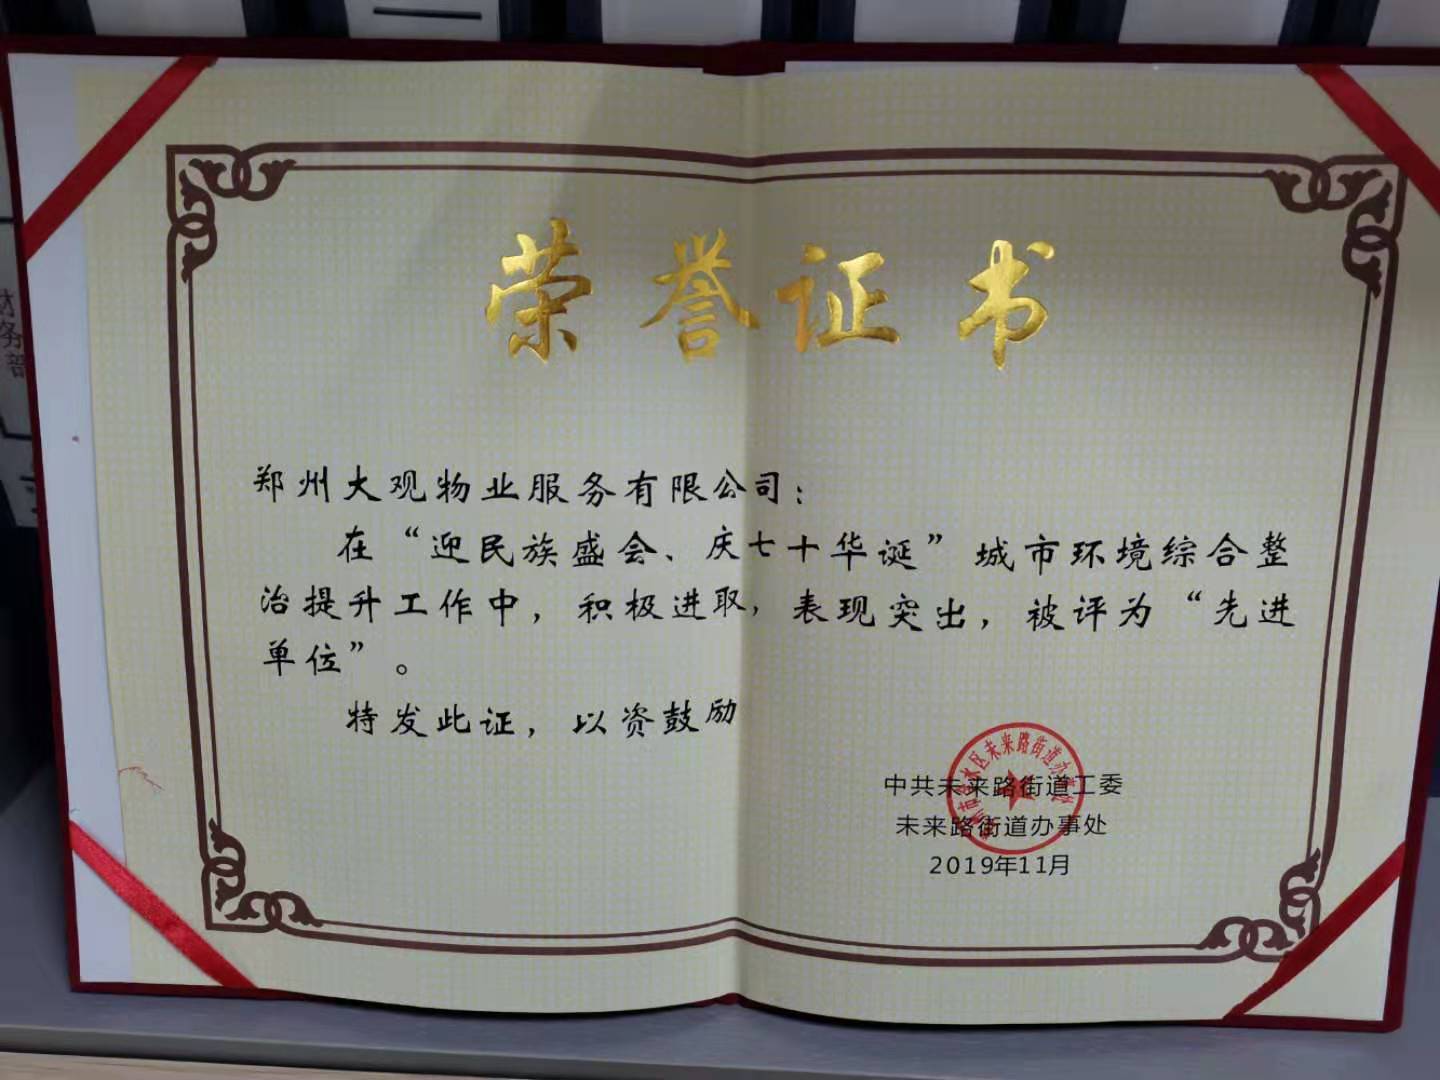 荣誉证书
郑州大观物业服务有限公司：
在“迎民族盛会、庆七十华诞”城市环境综合整
治提升工作中，积极进取，表现突出，被评为“先进
单位”。
特发此证，以资鼓励
中共未来路街道工委
未来路街道办事处
2019年11月
水区未来路街道办事处
财务部